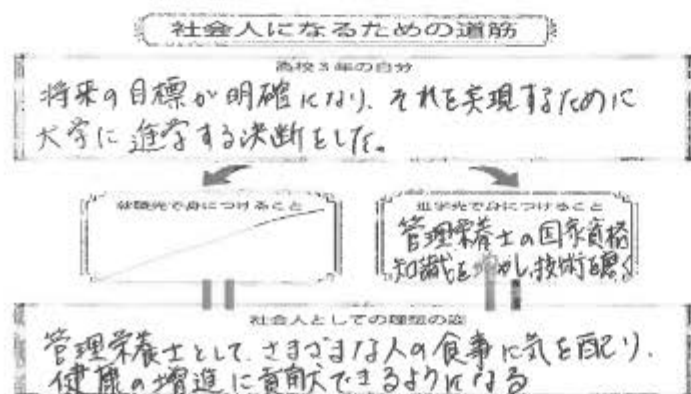 社会人になるための道筋
高校3年の自分
将来の目標が明確になり、それを実現するために
大学に進学する決断をした。
就職先で身につけること
進学先で身につけること
管理栄養士の国家資格
知識を し、技術を磨く
社会人としての理想の姿
管理栄養士として、さまざまな人の食事に気を配り、
健康の増進に貢献できるようになる